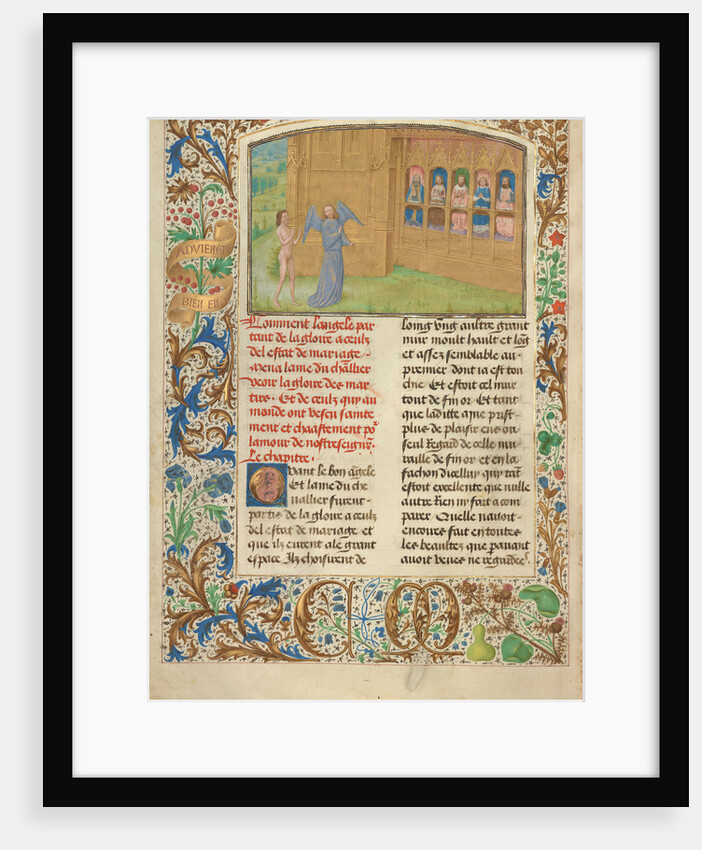 ADVIENGE
BIEN EN
Comment langele par
tant de la gloire a ceulz
del estat de mariage
Mena lame du chevallier
veoir la gloire des mar
tirs. Et de ceulz quy au
monde ont vescu sainte
ment et chaastement po
lamour de nostreseignr.
Le chapitre.
Quant le bon angele
Et lame du che
vallier furent
partis de la gloire a ceulz
del estat de mariage et
que ilz eurent ale grant
espace Ilz choisirent de
loing Ung aultre grant
mur moult hault et long
et assez semblable au
premier dont ia est tou
chie Et estoit cel mur
tout de fin or Et tant
que laditte ame prist
plus de plaisir en son
seul Regard de celle mu
raille de fin or et en la
fachon dicelluy quy tant
estoit excellente que nulle
autre Rien ny fait a com
parer Quelle navoit
encores fait en toutes
les beaultez que p avant
avoit veues ne regardees